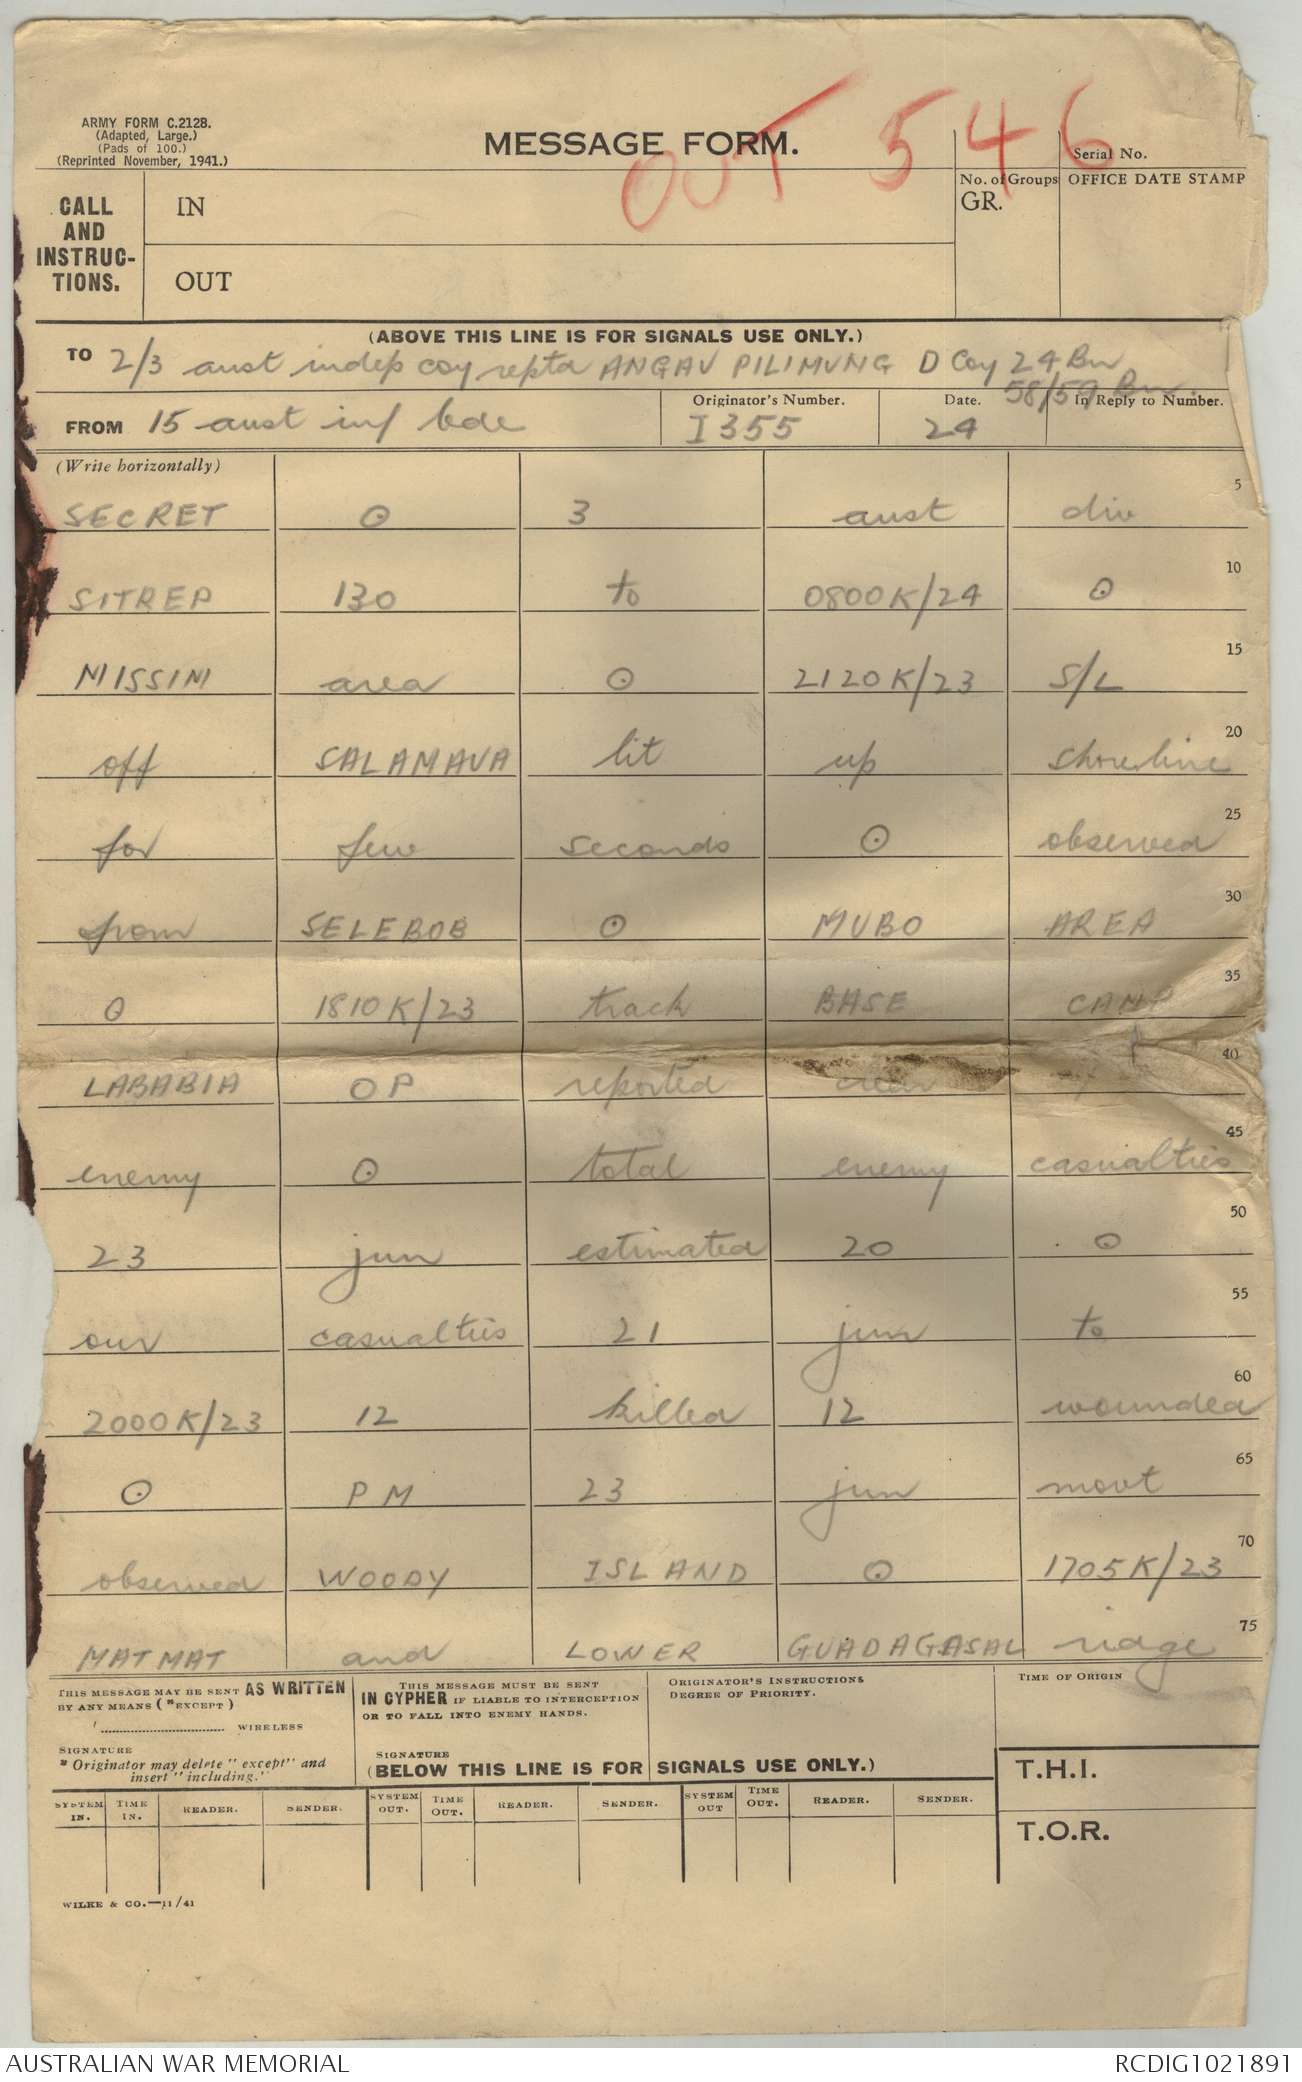 OUT 546
ARMY FORM C.2128.
(Adapted, Large.)
(Pads of 100.)
(Reprinted November, 1941.)
MESSAGE FORM.
Serial No.
CALL AND INSTRUC-TIONS.
IN
OUT
No. of Groups
GR.
OFFICE DATE STAMP
(ABOVE THIS LINE IS FOR SIGNALS USE ONLY.)
TO 2/3 aust indep coy reptd ANGAU PILIMUNG D Coy 24 Bn
58/59 Bn.
FROM 15 aust inf bde
Originator's Number.
I355
Date.
24
In Reply to Number.
(Write horizontally)
SECRET ⊙ 3 aust div 5
SITREP 130 to 0800K/24 ⊙ 10
MISSIM area ⊙ 2120K/23 S/L 15
off SALAMAUA lit up shoreline 20
for few seconds ⊙ observed 25
from SELEBOB ⊙ MUBO AREA 30
⊙ 1810K/23 track BASE CAMP 35
LABABIA OP reported clear of 40
enemy ⊙ total enemy casualties 45
23 jun estimated 20 ⊙ 50
our casualties 21 jun to 55
2000K/23 12 killed 12 wounded 60
⊙ PM 23 jun movt 65
observed WOODY ISLAND ⊙ 1705K/23 70
MATMAT and LOWER GUADAGASAL ridge 75
THIS MESSAGE MAY BE SENT AS WRITTEN
BY ANY MEANS (*EXCEPT)
WIRELESS
SIGNATURE
* Originator may delete "except" and
insert "including."
THIS MESSAGE MUST BE SENT
IN CYPHER IF LIABLE TO INTERCEPTION
OR TO FALL INTO ENEMY HANDS.
SIGNATURE
ORIGINATOR'S INSTRUCTIONS
DEGREE OF PRIORITY.
TIME OF ORIGIN
(BELOW THIS LINE IS FOR SIGNALS USE ONLY.)
T.H.I.
SYSTEM IN. TIME IN. READER. SENDER. SYSTEM OUT. TIME OUT. READER. SENDER. SYSTEM OUT TIME OUT. READER. SENDER.
T.O.R.
WILKE & CO.—11/41
AUSTRALIAN WAR MEMORIAL
RCDIG1021891